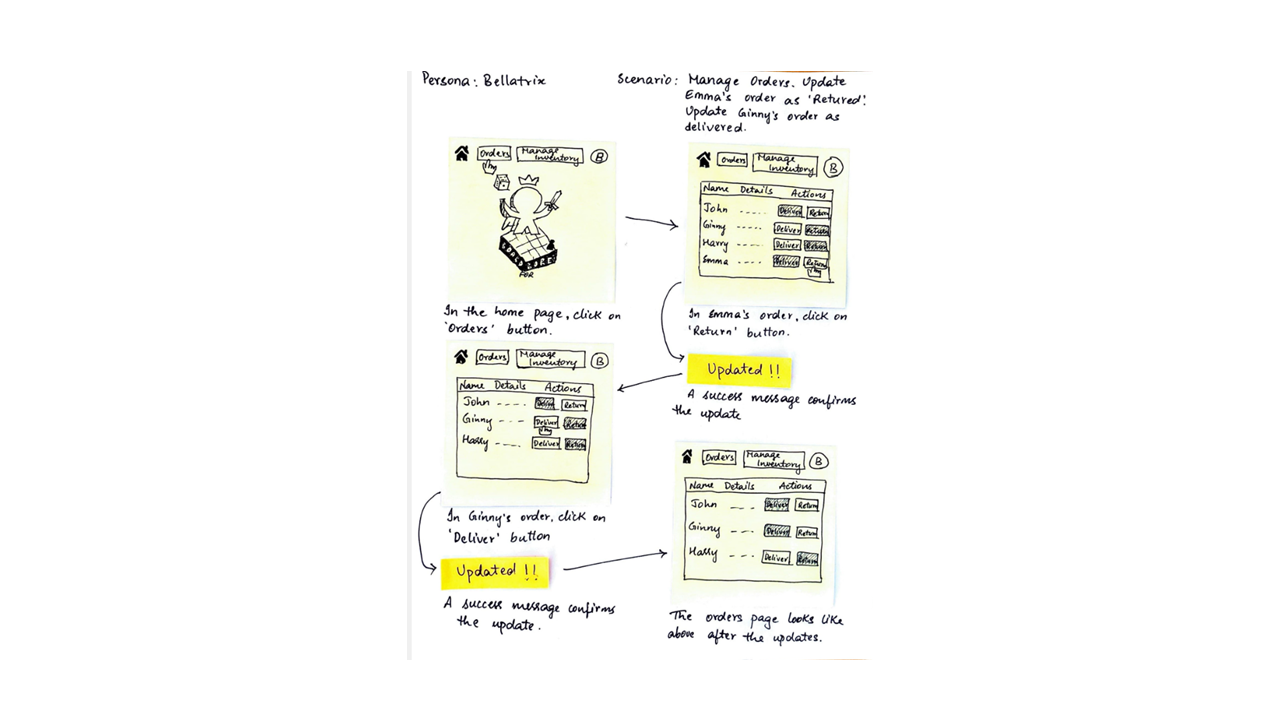 Persona: Bellatrix
Scenario: Manage Orders. Update
Emma's order as 'Retured'.
Update Ginny's order as
delivered.
Orders
Manage
Inventory
B
FOR
In the home page, click on
'Orders' button.
Orders
Manage
Inventory
B
Name Details Actions
John Deliver Return
Ginny Deliver Return
Harry Deliver Return
Emma Deliver Return
In Emma's order, click on
'Return' button.
Updated !!
A success message confirms
the update
Orders
Manage
Inventory
B
Name Details Actions
John Deliver Return
Ginny Deliver Return
Harry Deliver Return
In Ginny's order, click on
'Deliver' button
Updated !!
A success message confirms
the update.
Orders
Manage
Inventory
B
Name Details Actions
John Deliver Return
Ginny Deliver Return
Harry Deliver Return
The orders page looks like
above after the updates.